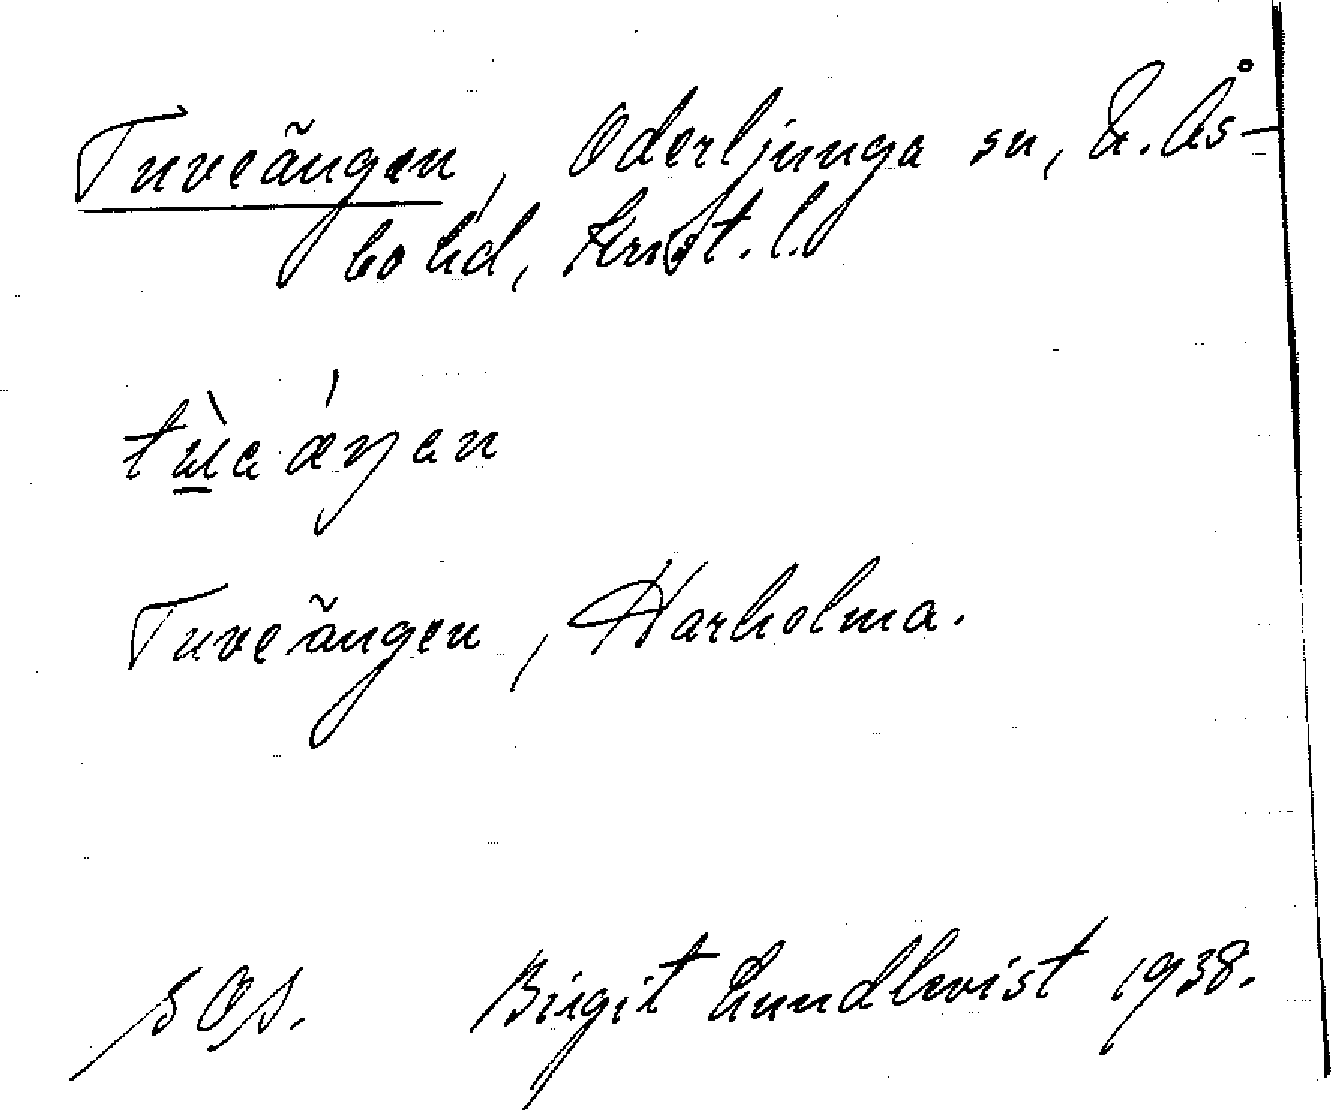 Tuveängen, Oderljunga sn, N. Ås-
bo hd, Krist. l.
Tuveängen, Harholma.
SOS. Birgit Lundkvist 1938.